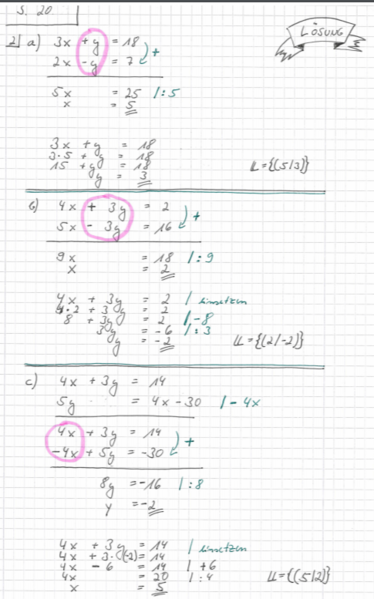 S. 20
LÖSUNG
2) a) 3x + y = 18
2x - y = 7 +
5x = 25 |:5
x = 5
3x + y = 18
3·5 + y = 18
15 + y = 18
y = 3
L={(5|3)}
b) 4x + 3y = 2
5x - 3y = 16 +
9x = 18 |:9
x = 2
4x + 3y = 2 | einsetzen
4·2 + 3y = 2
8 + 3y = 2 |-8
3y = -6 |:3
y = -2
L={(2|-2)}
c) 4x + 3y = 14
5y = 4x - 30 |-4x
4x + 3y = 14
-4x + 5y = -30 +
8y = -16 |:8
y = -2
4x + 3y = 14 | einsetzen
4x + 3·(-2) = 14
4x - 6 = 14 |+6
4x = 20 |:4
x = 5
L={(5|2)}